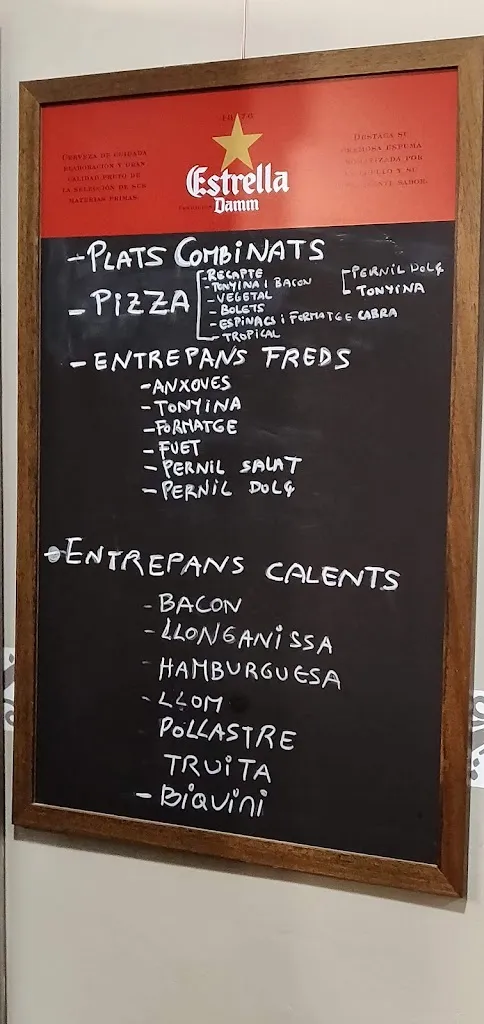 CERVEZA DE CUIDADA
ELABORACIÓN Y GRAN
CALIDAD FRUTO DE
LA SELECCIÓN DE SUS
MATERIAS PRIMAS.
DESTACA SU
ESPUMA
POR
Y SU
SABOR.
Estrella
Damm
-PLATS COMBINATS
- PIZZA
-RECAPTE
-TONYINA I BACON
-VEGETAL
-BOLETS
-ESPINACS i FORMATGE CABRA
-TROPICAL
-PERNIL DOLÇ
-TONYINA
- ENTREPANS FREDS
-ANXOVES
-TONYINA
-FORMATGE
-FUET
-PERNIL SALAT
-PERNIL DOLÇ
ENTREPANS CALENTS
-BACON
-LLONGANISSA
-HAMBURGUESA
-LLOM
POLLASTRE
TRUITA
-BIQUINI